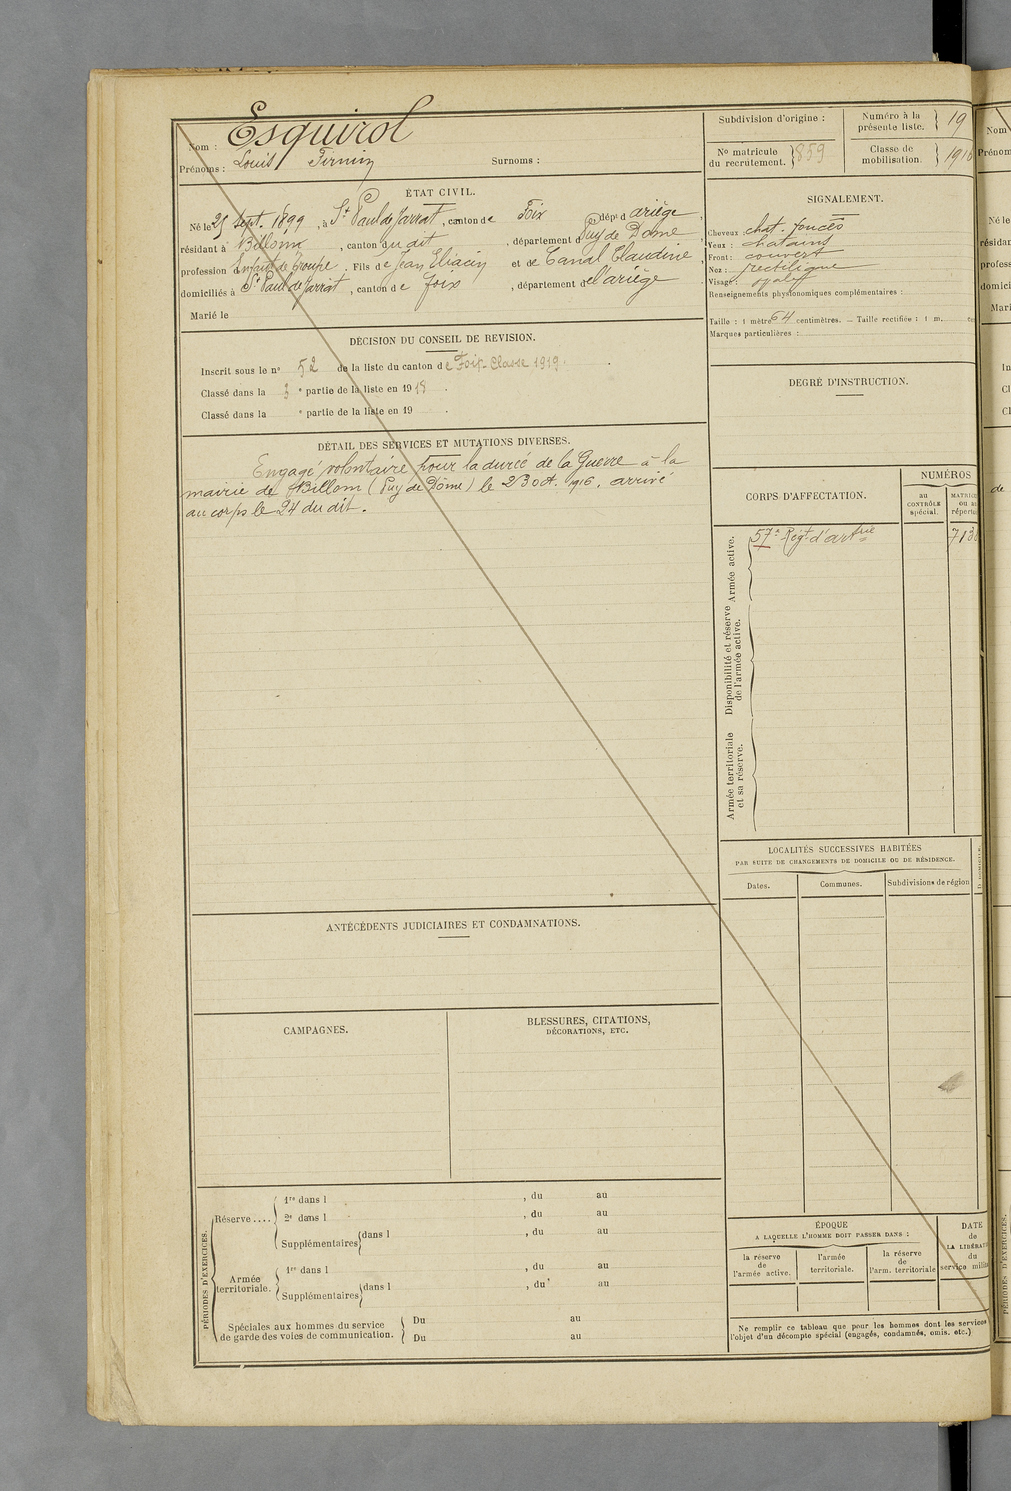 Nom : Esquirol
Prénoms : Louis Firmin Surnoms :
Subdivision d'origine :
Numéro à la présente liste. 19
No matricule du recrutement. 859
Classe de mobilisation. 1916
ÉTAT CIVIL.
Né le 25 Sept. 1899, à St Paul de Jarrat, canton de Foix, dépt d ariège,
résidant à Billom, canton du dit, département d Puy de Dome,
profession d'Enfant de Troupe. Fils de Jean Eliacin et de Canal Claudine
domiciliés à St Paul de Jarrat, canton de Foix, département de l'ariège.
Marié le
SIGNALEMENT.
Cheveux : chat. foncés
Yeux : chatains
Front : couvert
Nez : rectiligne
Visage : ovale
Renseignements physionomiques complémentaires :
Taille : 1 mètre 64 centimètres. — Taille rectifiée : 1 m.
Marques particulières :
DÉCISION DU CONSEIL DE REVISION.
Inscrit sous le no 52 de la liste du canton de Foix - Classe 1919.
Classé dans la 3 e partie de la liste en 1918.
Classé dans la e partie de la liste en 19 .
DEGRÉ D'INSTRUCTION.
DÉTAIL DES SERVICES ET MUTATIONS DIVERSES.
Engagé volontaire pour la durée de la Guerre à la
mairie de Billom (Puy de Dôme) le 23 oct. 1916. arrivé
au corps le 24 du dit.
CORPS D'AFFECTATION.
NUMÉROS
au CONTRÔLE spécial.
57e Régt d'artrie
Armée active.
Disponibilité et réserve de l'armée active.
Armée territoriale et sa réserve.
LOCALITÉS SUCCESSIVES HABITÉES
PAR SUITE DE CHANGEMENTS DE DOMICILE OU DE RÉSIDENCE.
Dates. Communes. Subdivisions de région
ANTÉCÉDENTS JUDICIAIRES ET CONDAMNATIONS.
CAMPAGNES.
BLESSURES, CITATIONS,
DÉCORATIONS, ETC.
PÉRIODES D'EXERCICES.
Réserve....
1re dans l , du au
2e dans l , du au
Supplémentaires dans l , du au
Armée territoriale.
1re dans l , du au
Supplémentaires dans l , du au
Spéciales aux hommes du service
de garde des voies de communication.
Du au
Du au
ÉPOQUE
A LAQUELLE L'HOMME DOIT PASSER DANS :
la réserve de l'armée active.
l'armée territoriale.
la réserve de l'arm. territoriale
DATE
de
du
Ne remplir ce tableau que pour les hommes dont les services
l'objet d'un décompte spécial (engagés, condamnés, omis. etc.)